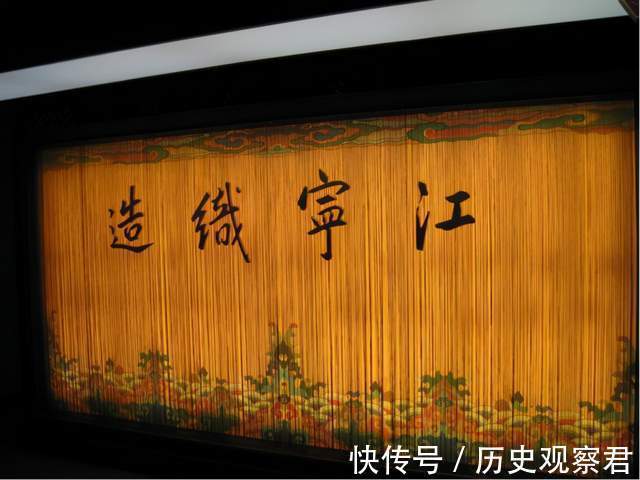 江寧織造
快传号 / 历史观察君